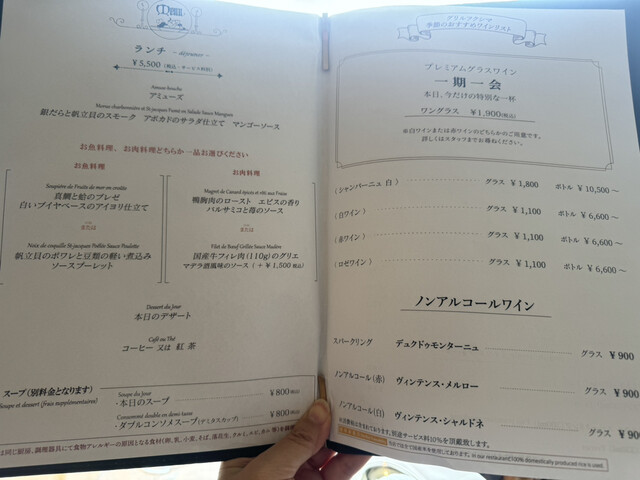 Menu
ランチ -déjeuner-
¥5,500 (税込・サービス料別)
Amuse-bouche
アミューズ
銀だらと帆立貝のスモーク アボカドのサラダ仕立て マンゴーソース
お魚料理、お肉料理どちらか一品お選びください
お魚料理
真鯛と蛤のブレゼ
白いブイヤベースのアイヨリ仕立て
または
Noix de coquille St-jacques Poêlée Sauce Poulette
帆立貝のポワレと豆類の軽い煮込み
ソースプーレット
お肉料理
Magret de Canard épicés et rôti aux Fraise
鴨胸肉のロースト エピスの香り
バルサミコと苺のソース
または
Filet de Bœuf Grillée Sauce Madère
国産牛フィレ肉(110g)のグリエ
マデラ酒風味のソース (+¥1,500 税込)
Dessert du jour
本日のデザート
Café ou Thé
コーヒー 又は 紅茶
スープ(別料金となります)
Soupe et dessert (frais supplémentaires)
Soupe du jour
・本日のスープ ¥800(税込)
Consommé double en demi tasse
・ダブルコンソメスープ(デミタスカップ) ¥800(税込)
グリルフクシマ
季節のおすすめワインリスト
プレミアムグラスワイン
一期一会
本日、今だけの特別な一杯
ワングラス ¥1,900(税込)
※白ワインまたは赤ワインのどちらかのご用意です。
詳しくはスタッフまでお尋ねください。
(シャンパーニュ 白) グラス ¥1,800 ボトル ¥10,500~
(白ワイン) グラス ¥1,100 ボトル ¥6,600~
(赤ワイン) グラス ¥1,100 ボトル ¥6,600~
(ロゼワイン) グラス ¥1,100 ボトル ¥6,600~
ノンアルコールワイン
スパークリング デュクドゥモンターニュ グラス ¥900
ノンアルコール(赤) ヴィンテンス・メルロー グラス ¥900
ノンアルコール(白) ヴィンテンス・シャルドネ グラス ¥9
別途サービス料10%を頂戴致します。
In our restaurant,100% domestically produced rice is used.